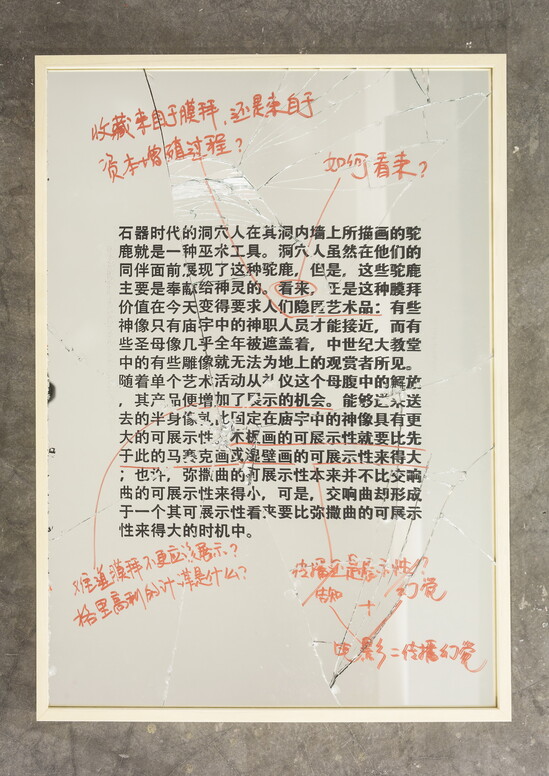 收藏来自于膜拜，还是来自于
资本增殖过程？
如何看来？
石器时代的洞穴人在其洞内墙上所描画的驼
鹿就是一种巫术工具。洞穴人虽然在他们的
同伴面前展现了这种驼鹿，但是，这些驼鹿
主要是奉献给神灵的。看来，正是这种膜拜
价值在今天变得要求人们隐匿艺术品：有些
神像只有庙宇中的神职人员才能接近，而有
些圣母像几乎全年被遮盖着，中世纪大教堂
中的有些雕像就无法为地上的观赏者所见。
随着单个艺术活动从礼仪这个母腹中的解放
，其产品便增加了展示的机会。能够送来送
去的半身像就比固定在庙宇中的神像具有更
大的可展示性，木板画的可展示性就要比先
于此的马赛克画或湿壁画的可展示性来得大
；也许，弥撒曲的可展示性本来并不比交响
曲的可展示性来得小，可是，交响曲却形成
于一个其可展示性看来要比弥撒曲的可展示
性来得大的时机中。
难道膜拜不更应该展示？
格里高利的计谋是什么？
传播还是展示性？
告知 + 幻觉
电影＝传播幻觉